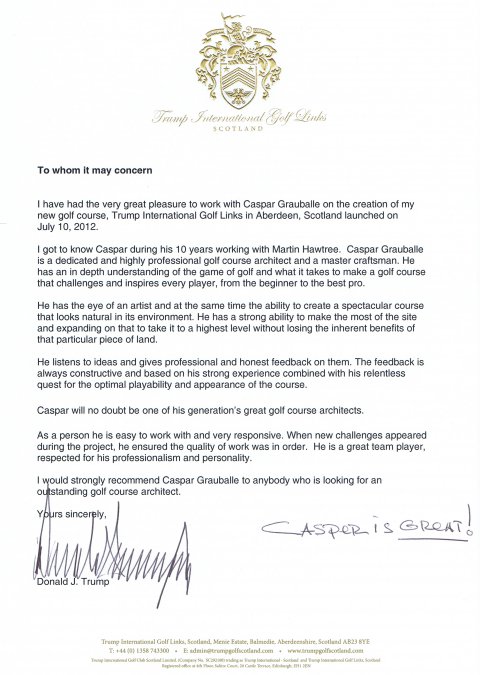 Trump International Golf Links
SCOTLAND
To whom it may concern
I have had the very great pleasure to work with Caspar Grauballe on the creation of my
new golf course, Trump International Golf Links in Aberdeen, Scotland launched on
July 10, 2012.
I got to know Caspar during his 10 years working with Martin Hawtree.  Caspar Grauballe
is a dedicated and highly professional golf course architect and a master craftsman. He
has an in depth understanding of the game of golf and what it takes to make a golf course
that challenges and inspires every player, from the beginner to the best pro.
He has the eye of an artist and at the same time the ability to create a spectacular course
that looks natural in its environment. He has a strong ability to make the most of the site
and expanding on that to take it to a highest level without losing the inherent benefits of
that particular piece of land.
He listens to ideas and gives professional and honest feedback on them. The feedback is
always constructive and based on his strong experience combined with his relentless
quest for the optimal playability and appearance of the course.
Caspar will no doubt be one of his generation's great golf course architects.
As a person he is easy to work with and very responsive. When new challenges appeared
during the project, he ensured the quality of work was in order.  He is a great team player,
respected for his professionalism and personality.
I would strongly recommend Caspar Grauballe to anybody who is looking for an
outstanding golf course architect.
Yours sincerely,
CASPER IS GREAT!
Donald J. Trump
Trump International Golf Links, Scotland, Menie Estate, Balmedie, Aberdeenshire, Scotland AB23 8YE
T: +44 (0) 1358 743300 • E: admin@trumpgolfscotland.com • www.trumpgolfscotland.com
Trump International Golf Club Scotland Limited, (Company No. SC292100) trading as Trump International - Scotland and Trump International Golf Links, Scotland
Registered office at 6th Floor, Saltire Court, 20 Castle Terrace, Edinburgh, EH1 2EN